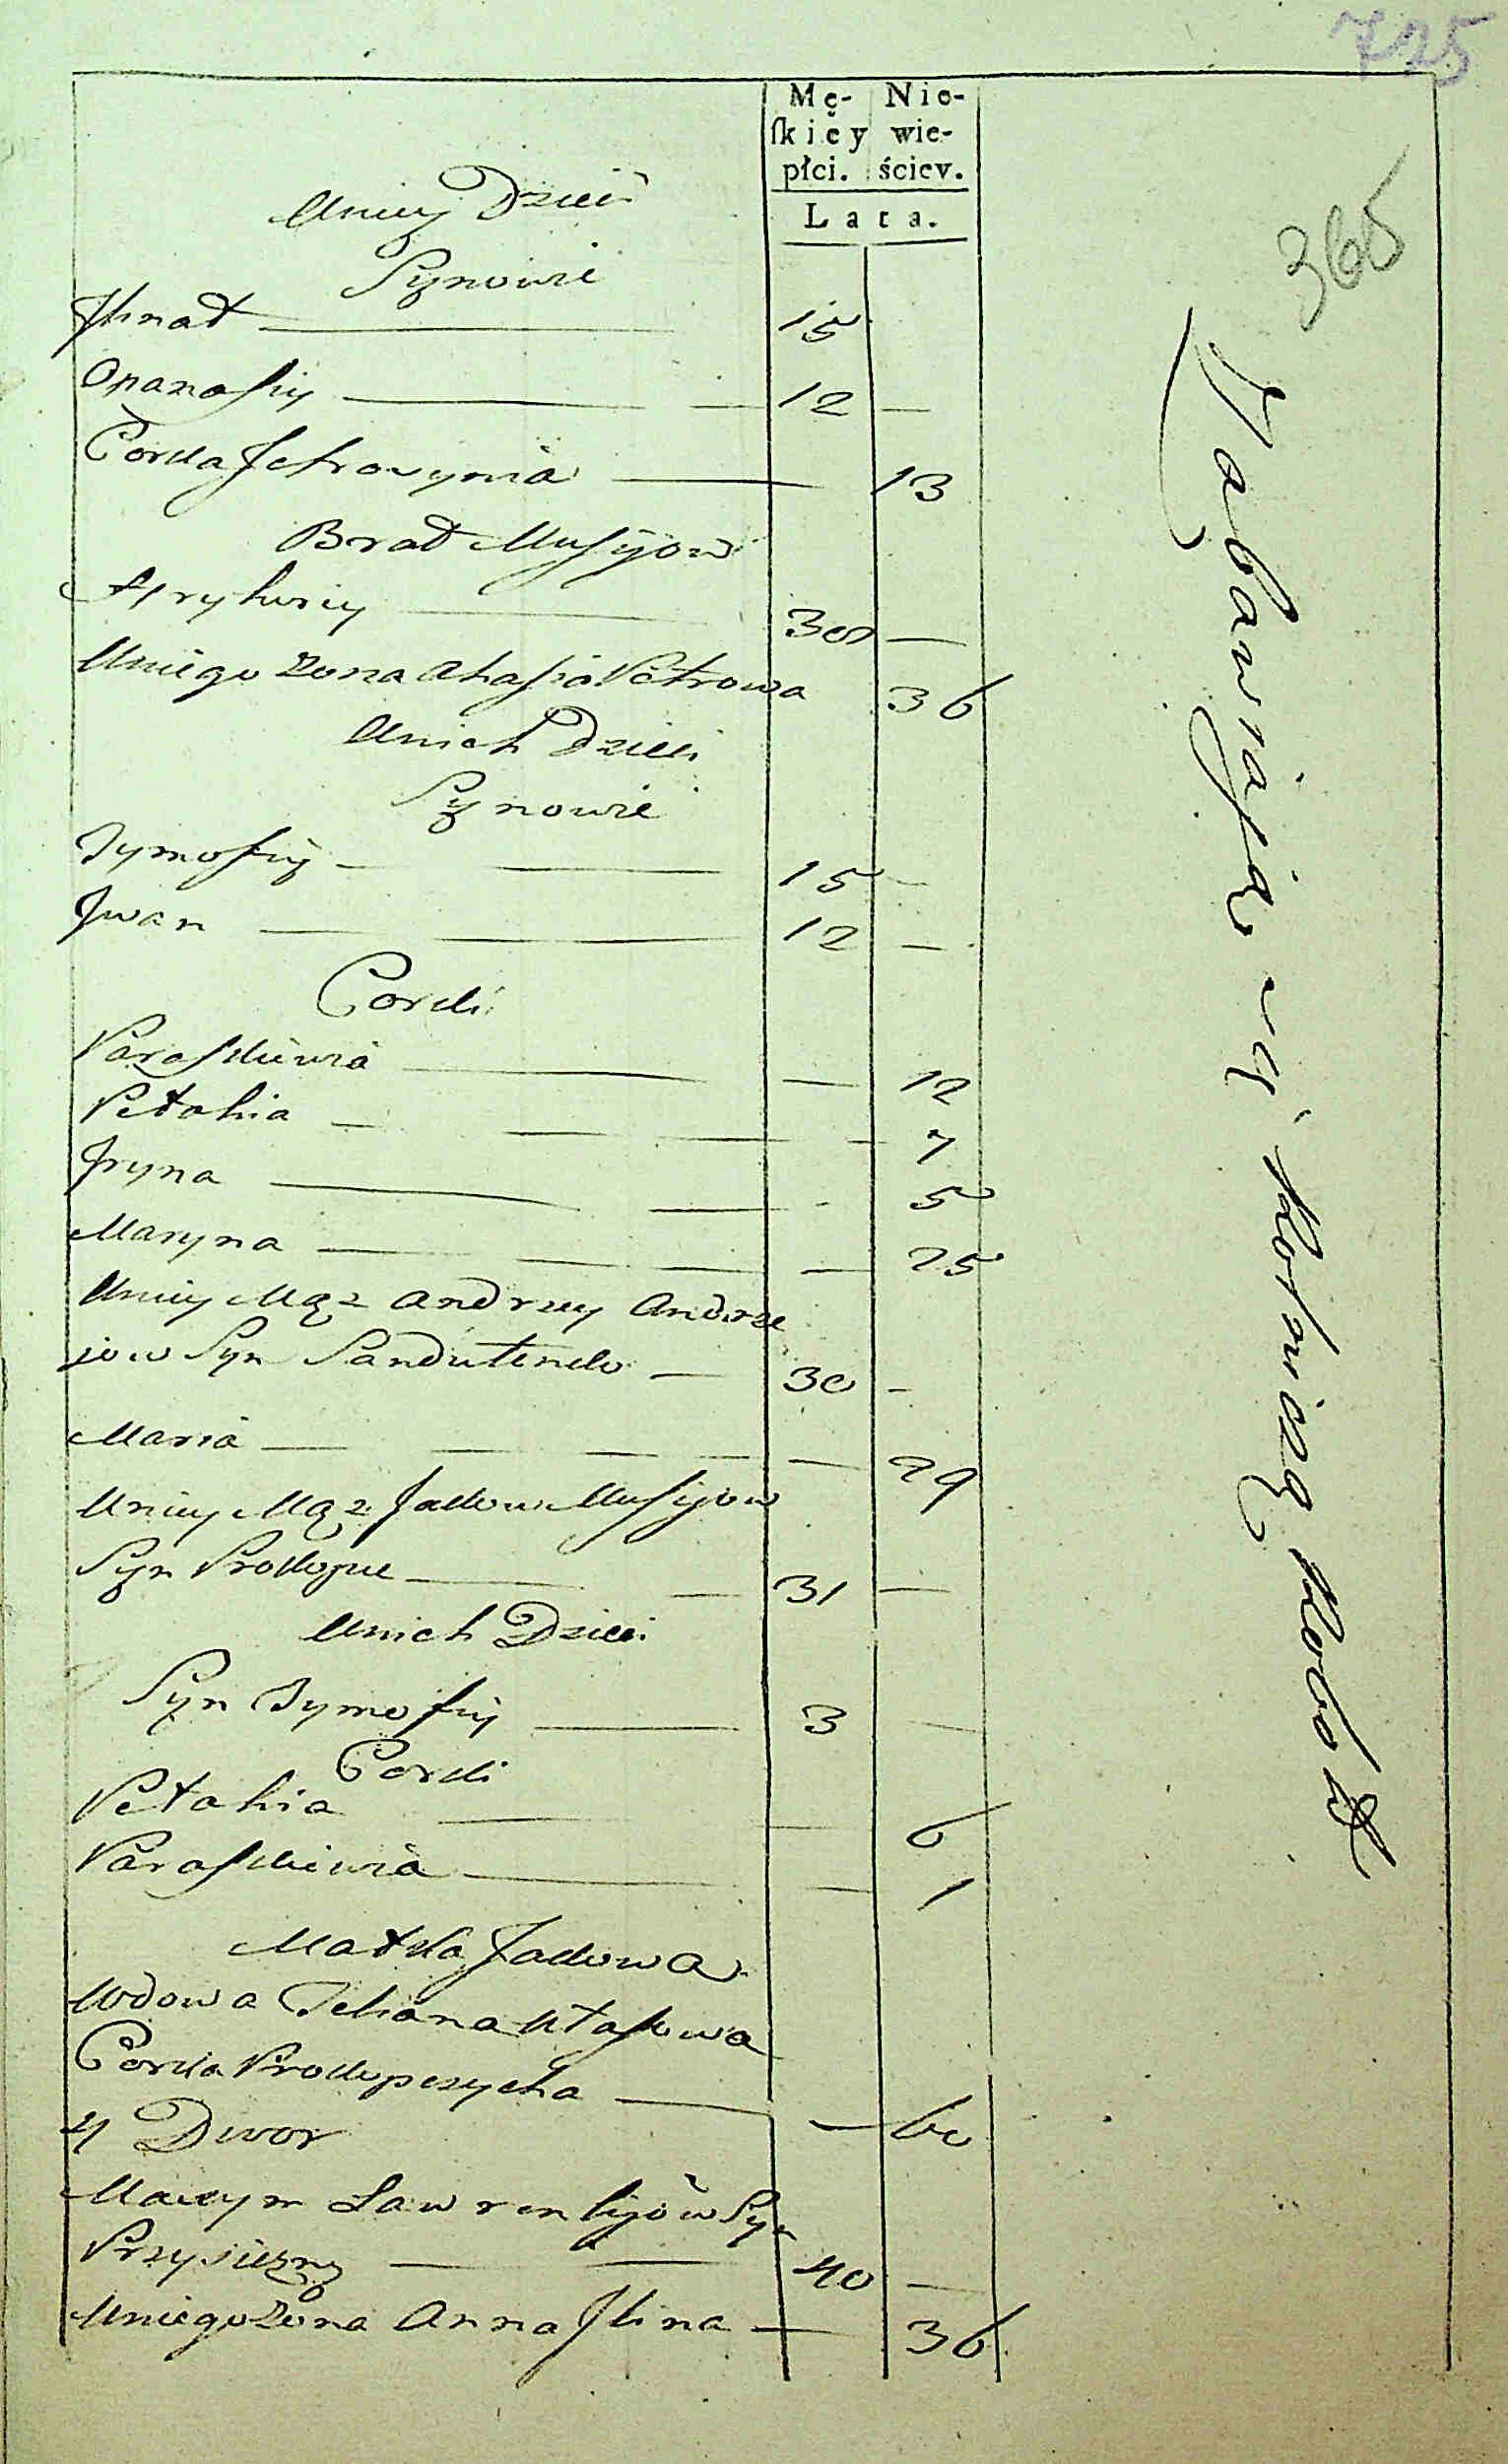 725
Mę- Nie-
skiey wie-
płci. ściey.
Lata.
365
Uniey Dzieci
Synowie
Ihnat 15
Opanasiy 12 —
Corka Jewrosynia 13
Brat Musijow
Hryhoriy 38 —
Uniego Zona Ahafia Petrowa 36
Unich Dzieci
Synowie
Tymofiy 15 —
Iwan 12 —
Corki
Paraskiewia — 12
Pelahia — 7
Iryna 5
Maryna — 25
Uniey Mąz Andrzey Andrze
jow Syn Sandulenko 30 —
Maria — 29
Uniey Mąz Jakow Musijow
Syn Prokopie 31 —
Unich Dzieci
Syn Tymofiy 3 —
Corki
Pelahia — 6
Paraskiewia — 1
Matka Jakowa
Wdowa Tetiana
Corka Prokopczycha — 60
4 Dwor
Maxym Lawrentijow Syn
Przysiezny 40 —
Uniego Zona Anna Ilina — 36
Zabawiaią się Rolniczą Robotą